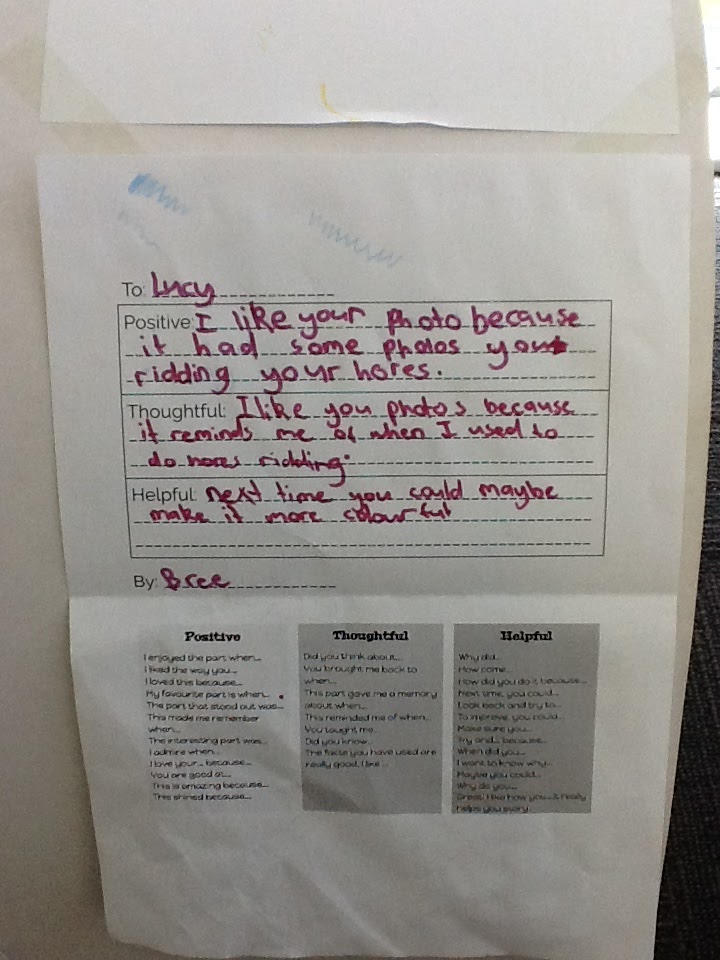 To: Lucy
Positive: I like your photo because
it had some photos you
ridding your hores.
Thoughtful: I like you photos because
it reminds me of when I used to
do hores ridding.
Helpful: next time you could maybe
make it more colourful
By: Bree
Positive
I enjoyed the part when...
I liked the way you...
I loved this because...
My favourite part is when...
The part that stood out was...
This made me remember
when...
The interesting part was...
I admire when...
I love your... because...
You are good at...
This is amazing because...
This shined because...
Thoughtful
Did you think about...
You brought me back to
when...
This part gave me a memory
about when...
This reminded me of when...
You taught me...
Did you know...
The facts you have used are
really good, I like...
Helpful
Why did...
How come...
How did you do it because...
Next time, you could...
Look back and try to...
To improve, you could...
Make sure you...
Try and... because...
When did you...
I want to know why...
Maybe you could...
Why do you...
Great! I like how you...it really
helps you